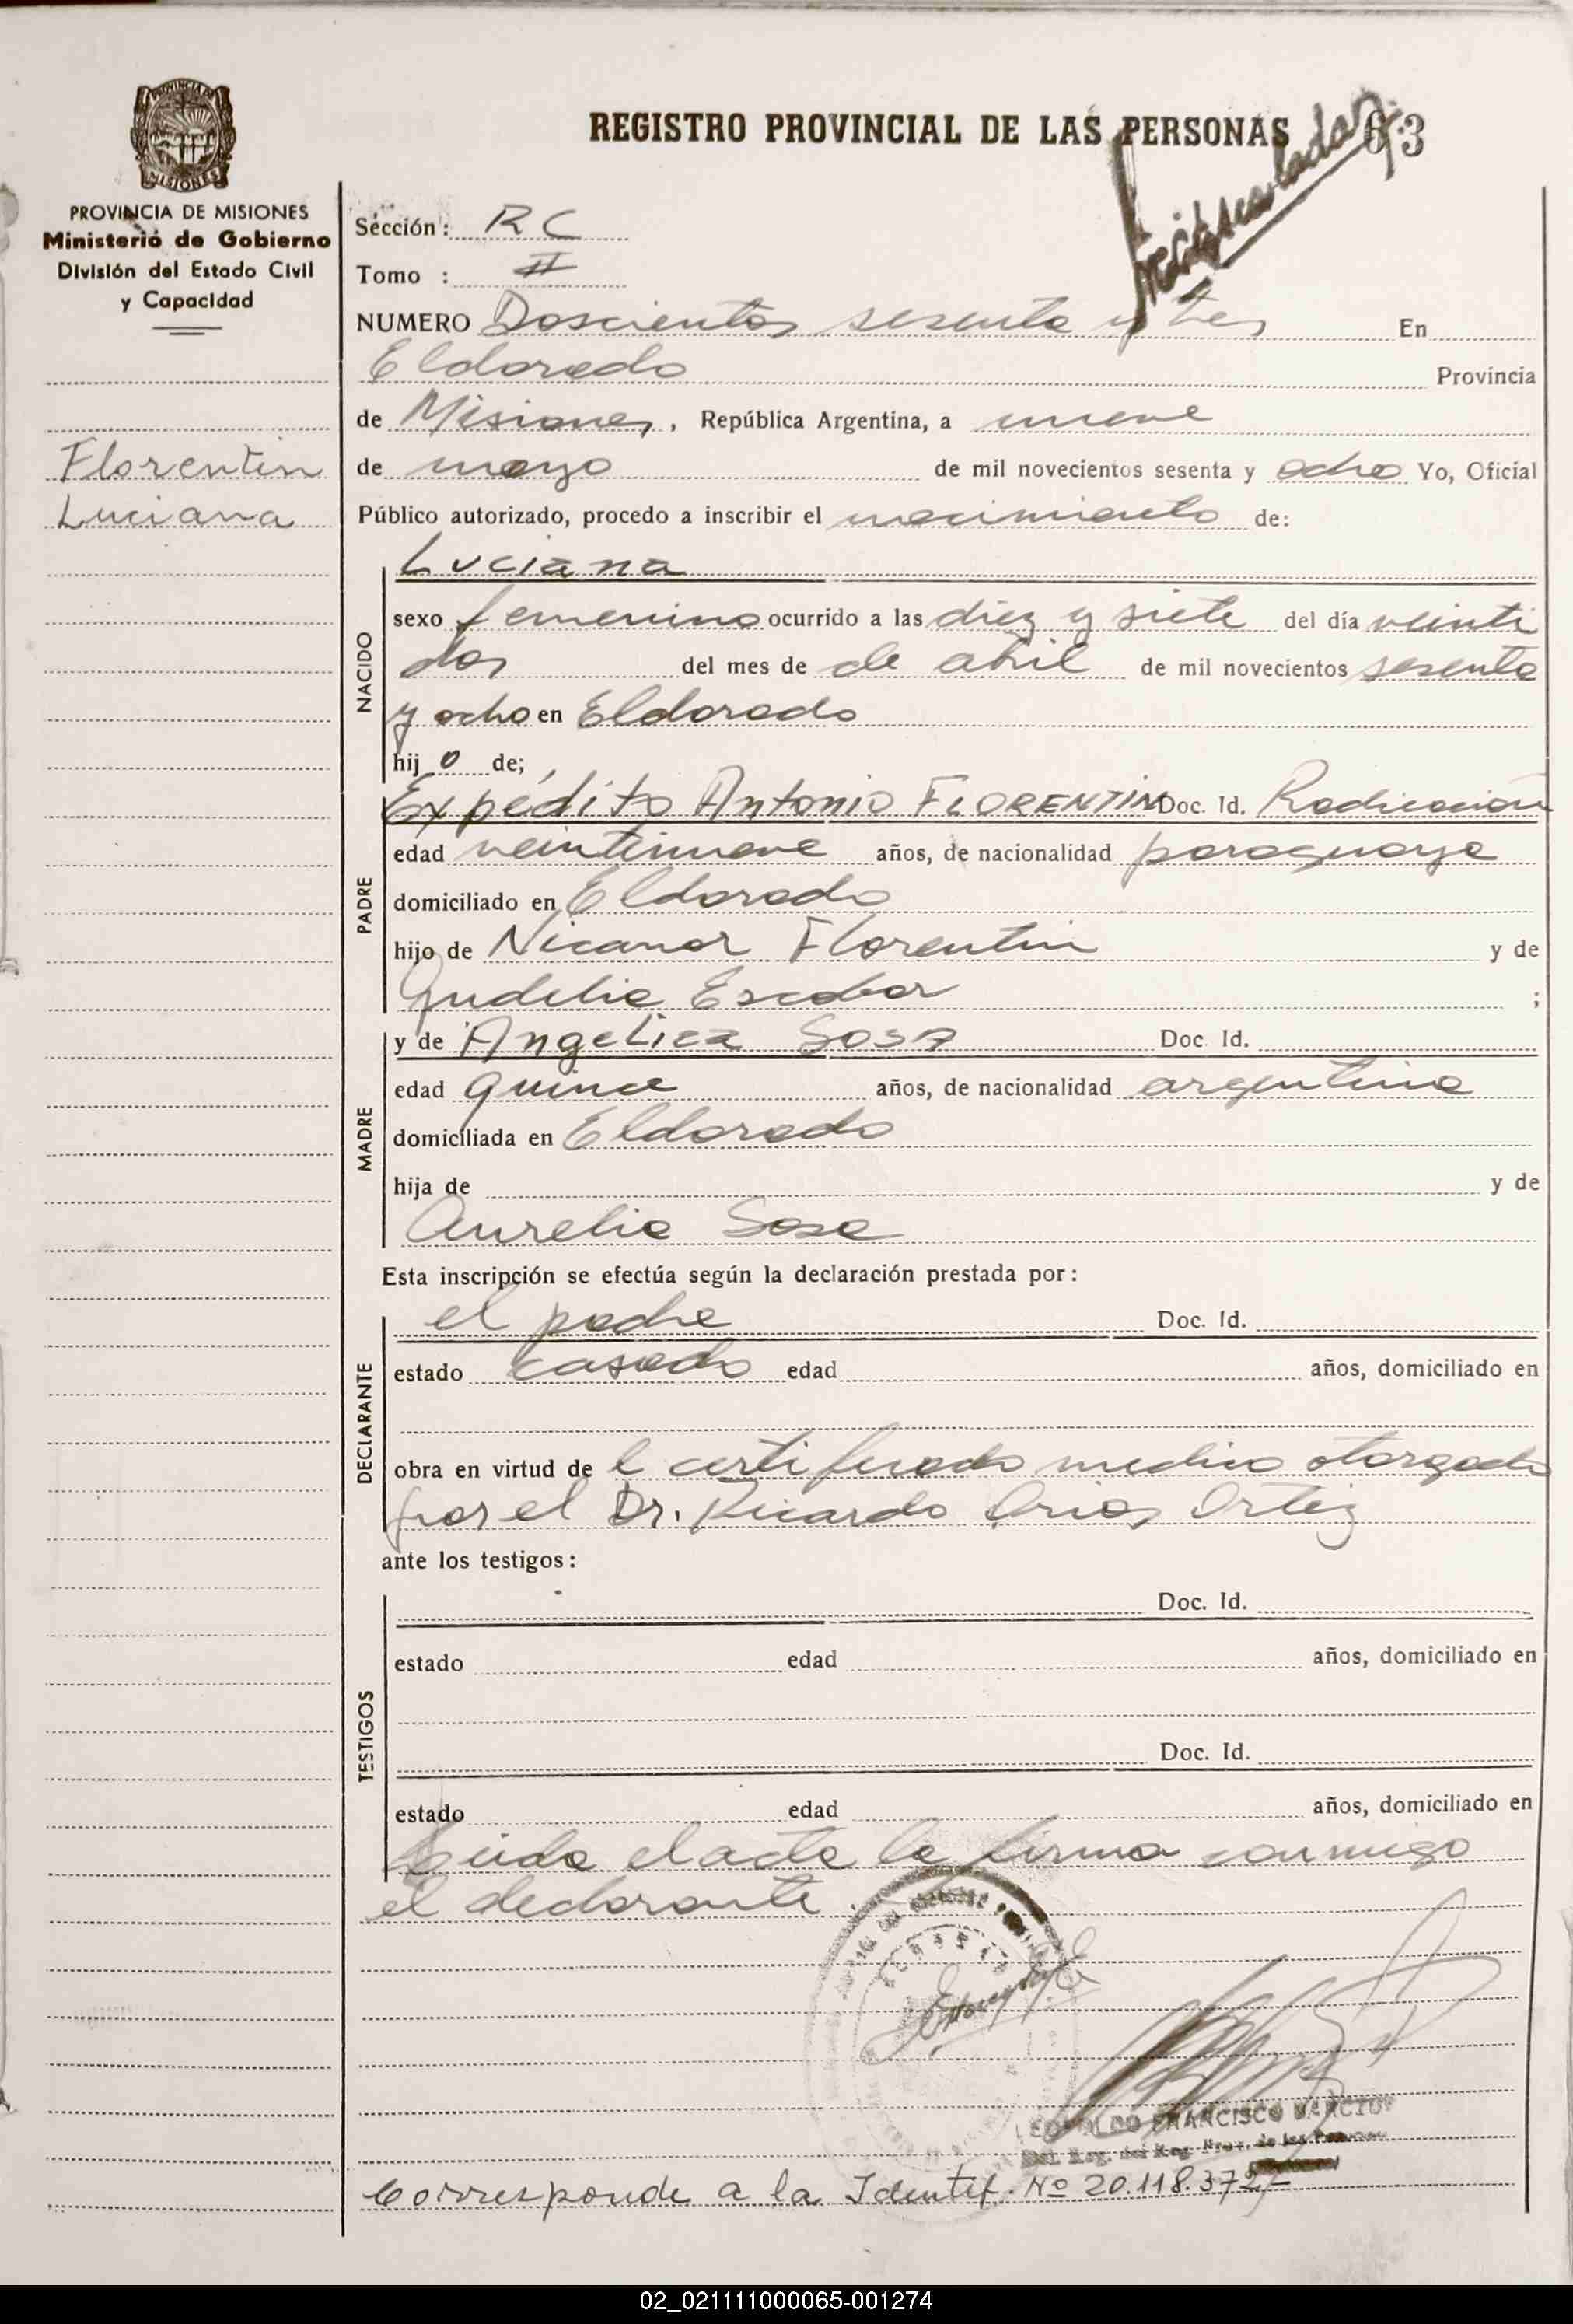 REGISTRO PROVINCIAL DE LAS PERSONAS 63
PROVINCIA DE
MISIONES
PROVINCIA DE MISIONES
Ministerio de Gobierno
División del Estado Civil
y Capacidad
Florentin
Luciana
Sección: RC
Tomo : II
NUMERO Doscientos sesenta y tres En
Eldorado Provincia
de Misiones, República Argentina, a nueve
de mayo de mil novecientos sesenta y ocho Yo, Oficial
Público autorizado, procedo a inscribir el nacimiento de:
NACIDO
Luciana
sexo femenino ocurrido a las diez y siete del día veinti
dos del mes de de abril de mil novecientos sesenta
y ocho en Eldorado
hij o de;
PADRE
Expédito Antonio FLORENTIN Doc. Id. Radicación
edad veintinueve años, de nacionalidad paraguaya
domiciliado en Eldorado
hijo de Nicanor Florentin y de
Gudelia Escobar ;
MADRE
y de Angelica Sosa Doc. Id.
edad quince años, de nacionalidad argentina
domiciliada en Eldorado
hija de y de
Aurelia Sosa
Esta inscripción se efectúa según la declaración prestada por:
DECLARANTE
el padre Doc. Id.
estado casado edad años, domiciliado en
obra en virtud de l certificado medico otorgado
por el Dr. Ricardo Arias Ortiz
ante los testigos:
TESTIGOS
Doc. Id.
estado edad años, domiciliado en
Doc. Id.
estado edad años, domiciliado en
Leida el acta la firma conmigo
el declarante
FRANCISCO
Corresponde a la Identif. Nº 20.118.372/-
02_021111000065-001274